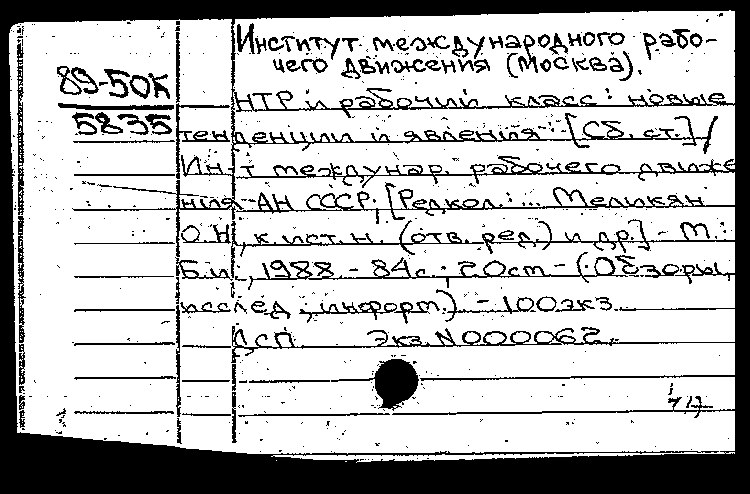 Институт международного рабо-
чего движения (Москва).
89-50К
5835
НТР и рабочий класс: новые
тенденции и явления: [Сб. ст.] /
Ин-т междунар. рабочего движе
ния АН СССР; [Редкол.: ... Меликян
О.Н., к.ист.н. (отв. ред.) и др.] - М.:
Б.и., 1988. - 84с.; 20см - (Обзоры,
исслед., информ.) - 100экз.
ДСП. Экз. N000062.